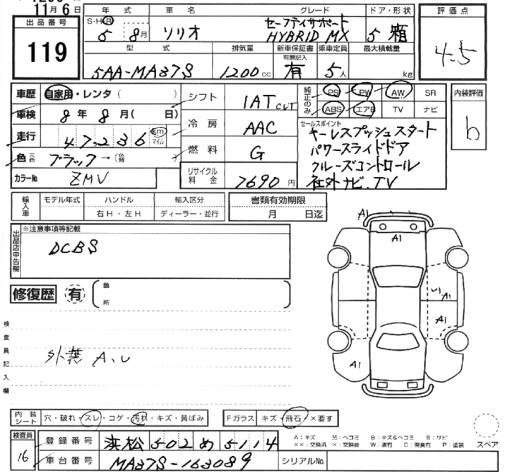 11月6日
出品番号
119
年式
S・H・R
5年 8月
車名
ソリオ
グレード
セーフティサポート
HYBRID MX
ドア・形状
5 箱
評価点
4.5
型式
5AA-MA37S
排気量
1200cc
新車保証書
有無記入
有
乗車定員
5人
最大積載量
kg
車歴 自家用・レンタ( )
車検 8年 8月 日
走行 47,236 km マイル
色 (元色) ブラック→(色替)
カラーNo. ZMV
シフト 1AT CVT
冷房 AAC
燃料 G
リサイクル料金 7690円
純正のみ
PS PW AW SR
ABS エアB TV ナビ
セールスポイント
キーレスプッシュスタート
パワースライドドア
クルーズコントロール
社外ナビ.TV
内装評価
b
輸入車
モデル年式
ハンドル
右H・左H
輸入区分
ディーラー・並行
書類有効期限
月 日迄
出品店申告欄
※注意事項等記載
DCBS
修復歴 有
箇所
検査員記入欄
外装 A.U
A1
A1
U1
A1
A1
内装シート
穴・破れ・スレ・コゲ・汚れ・キズ・黄ばみ
Fガラス キズ・飛石・×要す
検査員
16
登録番号 浜松 502 め 5114
車台番号 MA37S-163089
シリアルNo.
A:キズ M:ヘコミ B:キズ&ヘコミ S:サビ
××:交換済 ×:交換要 W:波打 C:腐食 P:塗装
スペア